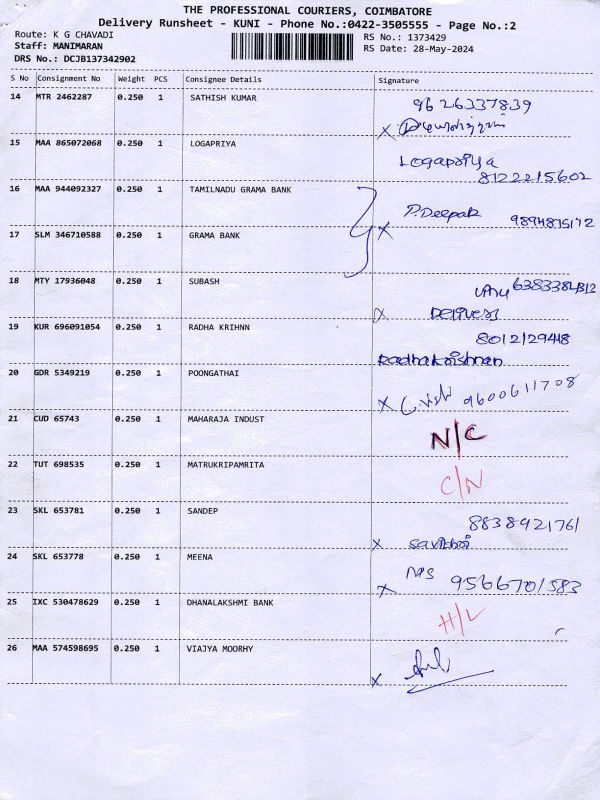 THE PROFESSIONAL COURIERS, COIMBATORE
Delivery Runsheet - KUNI - Phone No.:0422-3505555 - Page No.:2
Route: K G CHAVADI
RS No.: 1373429
Staff: MANIMARAN
RS Date: 28-May-2024
DRS No.: DCJB137342902
S No Consignment No Weight PCS Consignee Details Signature
14 MTR 2462287 0.250 1 SATHISH KUMAR 9626337839
15 MAA 865072068 0.250 1 LOGAPRIYA Logapriya
8122215602
16 MAA 944092327 0.250 1 TAMILNADU GRAMA BANK
X P.Deepak 9894875172
17 SLM 346710588 0.250 1 GRAMA BANK
18 MTY 17936048 0.250 1 SUBASH
19 KUR 696091054 0.250 1 RADHA KRIHNN 8012129448
Radhakrishnan
20 GDR 5349219 0.250 1 POONGATHAI
X 9600611708
21 CUD 65743 0.250 1 MAHARAJA INDUST N/C
22 TUT 698535 0.250 1 MATRUKRIPAMRITA C/N
23 SKL 653781 0.250 1 SANDEP 8838921761
X
24 SKL 653778 0.250 1 MEENA
X 9566701583
25 IXC 530478629 0.250 1 DHANALAKSHMI BANK H/L
26 MAA 574598695 0.250 1 VIAJYA MOORHY
X